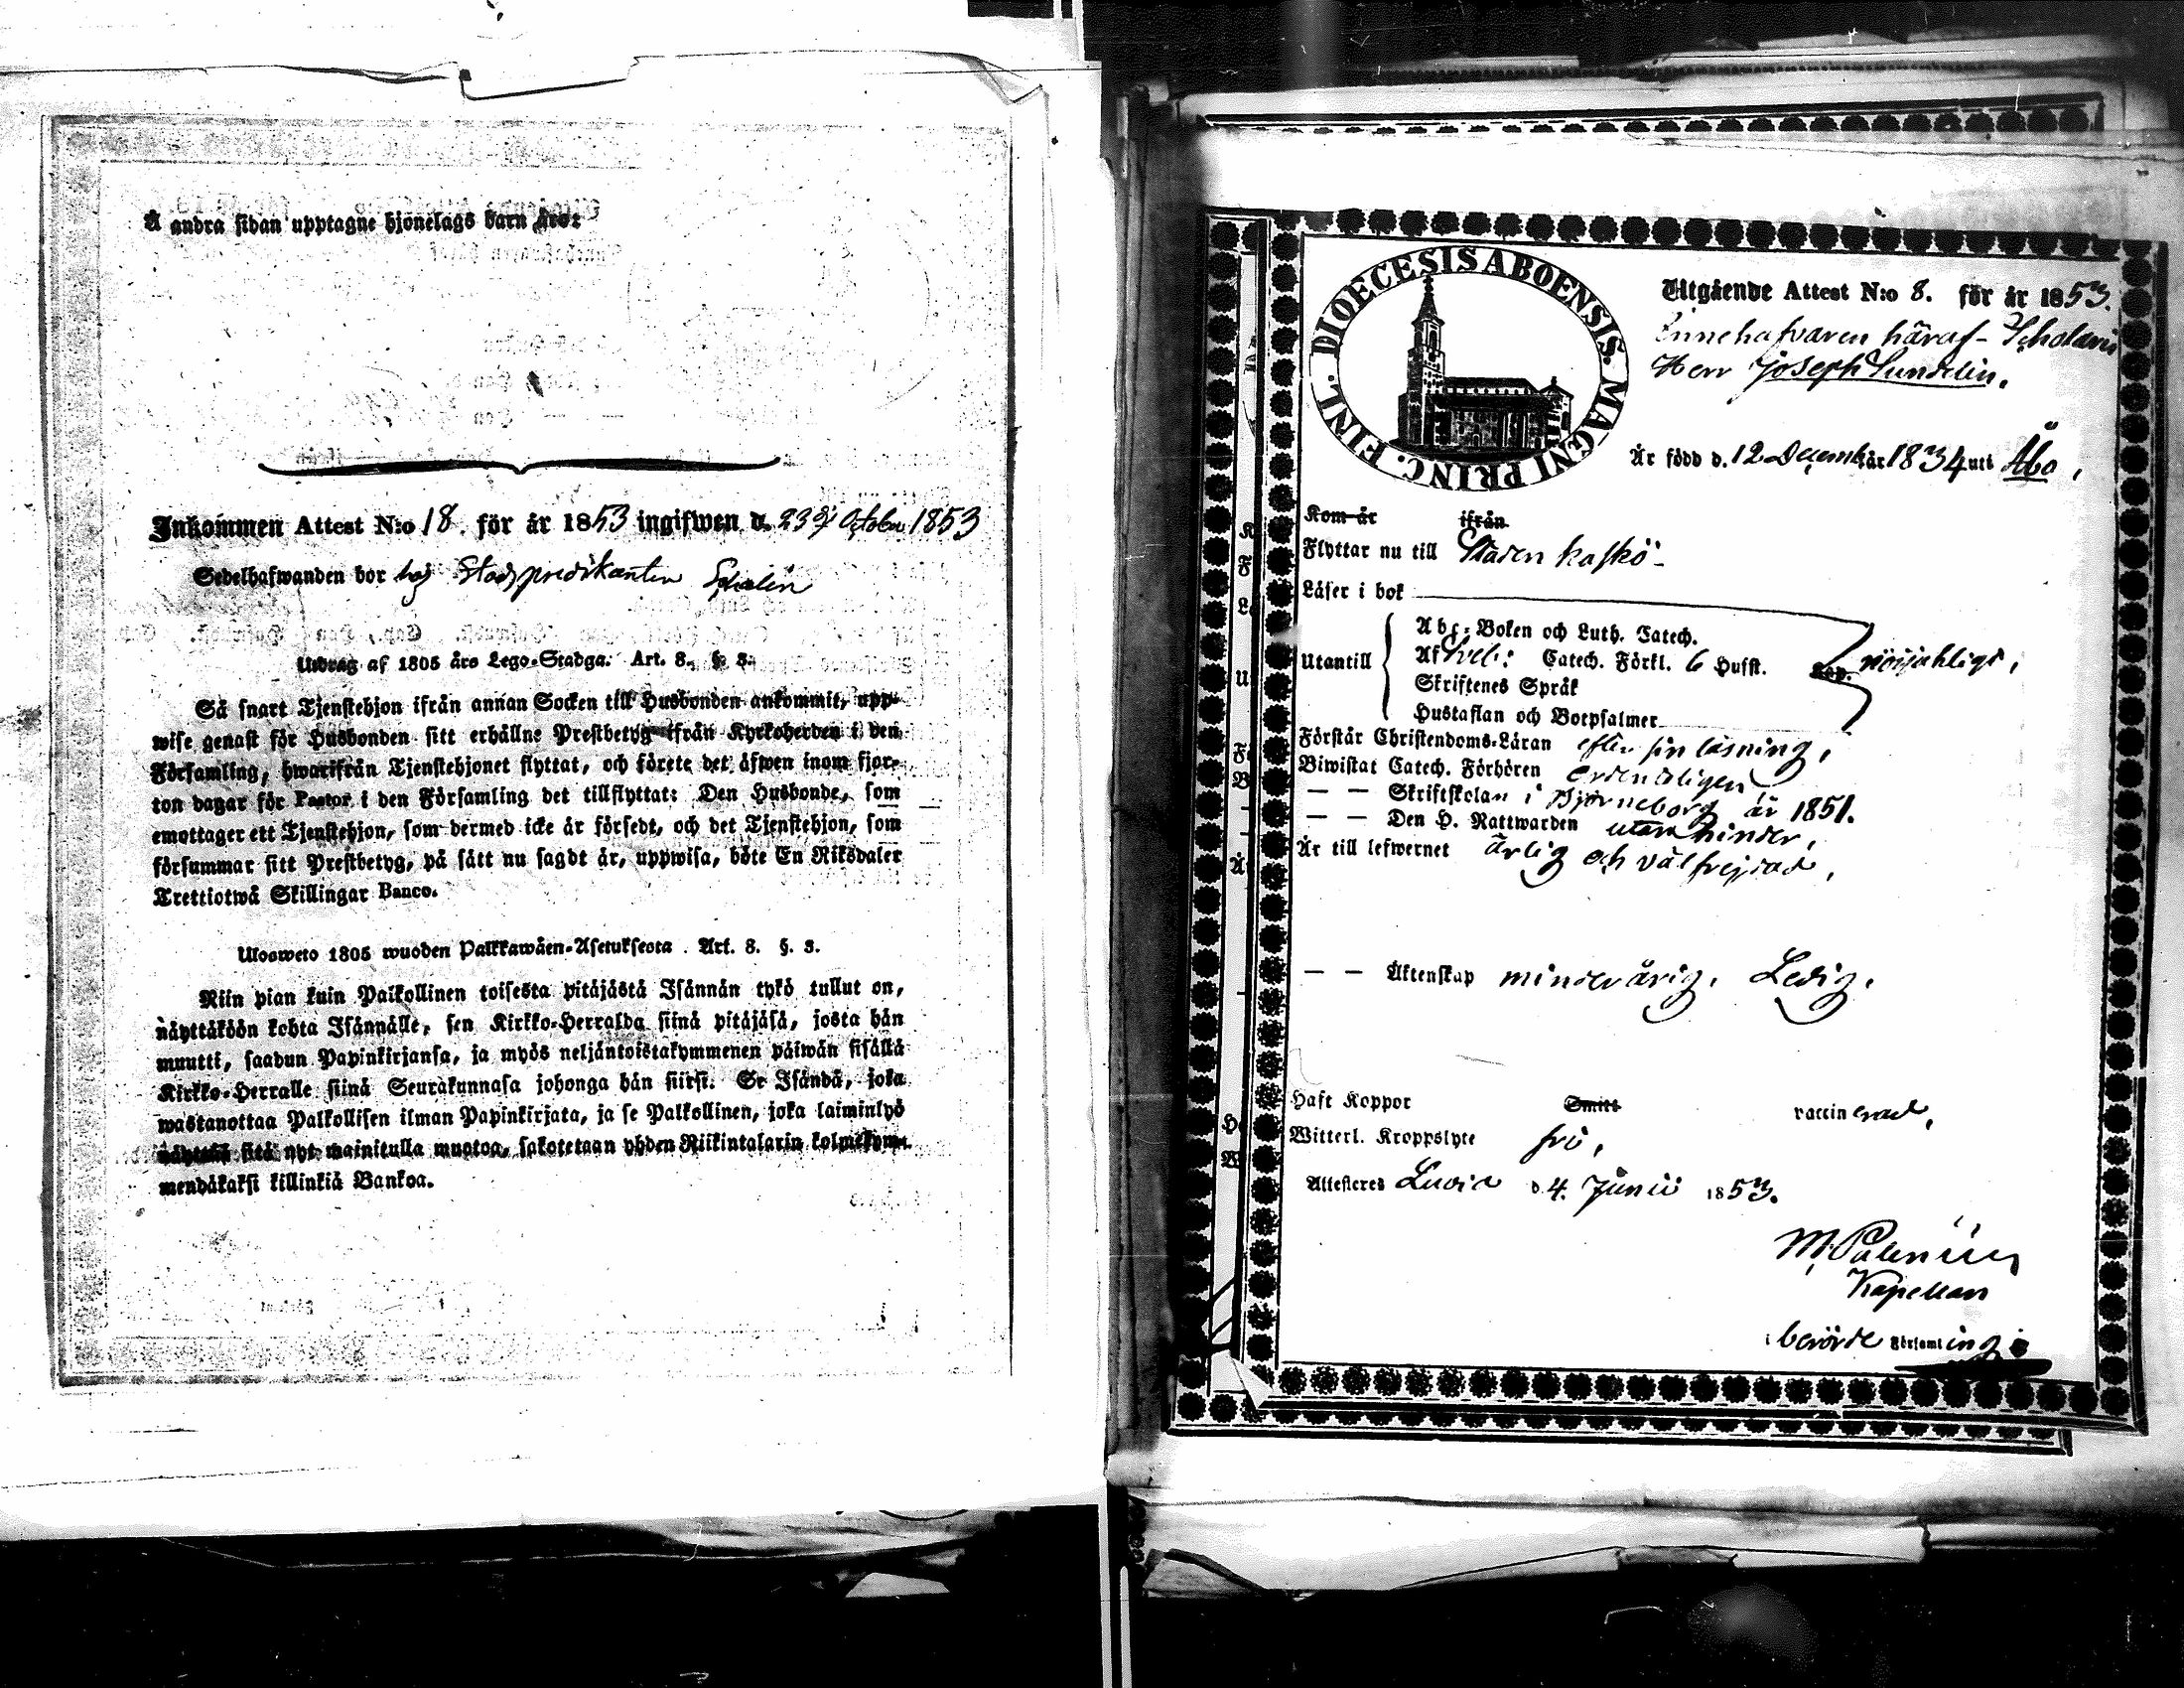 Å andra sidan upptagne hjonelags barn äro:
Inkommen Attest N:o 18. för år 1853 ingifwen d. 23 October 1853
Sedelhafwanden bor hos Stadspredikanten Schalin
Utdrag af 1805 års Lego-Stadga. Art. 8. §. 3.
Så snart Tjenstehjon ifrån annan Socken till Husbonden ankommit, upp-
wise genast för Husbonden sitt erhållne Prestbetyg ifrån Kyrkoherden i den
Församling, hwarifrån Tjenstehjonet flyttat, och förete det äfwen inom fjor-
ton dagar för Pastor i den Församling det tillflyttat: Den Husbonde, som
emottager ett Tjenstehjon, som dermed icke är försedt, och det Tjenstehjon, som
försummar sitt Prestbetyg, på sätt nu sagdt är, uppwisa, böte En Riksdaler
Trettiotwå Skillingar Banco.
Ulosweto 1805 wuoden Palkkawäen-Asetuksesta. Art. 8. §. 3.
Niin pian kuin Palkollinen toisesta pitäjästä Isännän tykö tullut on,
näyttäköön kohta Isännälle, sen Kirkko-Herralda siinä pitäjäsä, josta hän
muutti, saadun Papinkirjansa, ja myös neljäntoistakymmenen päiwän sisällä
Kirkko-Herralle siinä Seurakunnasa johonga hän siirsi. Se Isändä, joka
wastanottaa Palkollisen ilman Papinkirjata, ja se Palkollinen, joka laiminlyö
näyttää sitä nyt mainitulla muotoa, sakotetaan yhden Riikintalarin kolmekym-
mendäkaksi killinkiä Bankoa.
DIOECESIS ABOENSIS MAGNI PRINC. FINL.
Utgående Attest N:o 8. för år 1853.
Innehafvaren häraf Scholaris
Herr Joseph Sundelin.
Är född d. 12 Decemb. år 1834 uti Åbo,
Kom år ifrån
Flyttar nu till Staden Kaskö
Läser i bok
Utantill
Abc-Boken och Luth. Catech.
Af Cateh. Förkl. 6 Husst. Cap. nöjaktligt,
Skriftenes Språk
Hustaflan och Botpsalmer
Förstår Christendoms-Läran efter sin läsning,
Biwistat Catech. Förhören ordentligen
— — Skriftskolan i Björneborg år 1851.
— — Den H. Nattwarden utan hinder,
Är till lefwernet ärlig och välfrejdad,
— — Äktenskap minderårig. Ledig.
Haft Koppor Smitt vaccinerad,
Witterl. Kroppslyte fri,
Attesteres Luvia d. 4. Junii 1853.
Kapellan
i berörde Församling